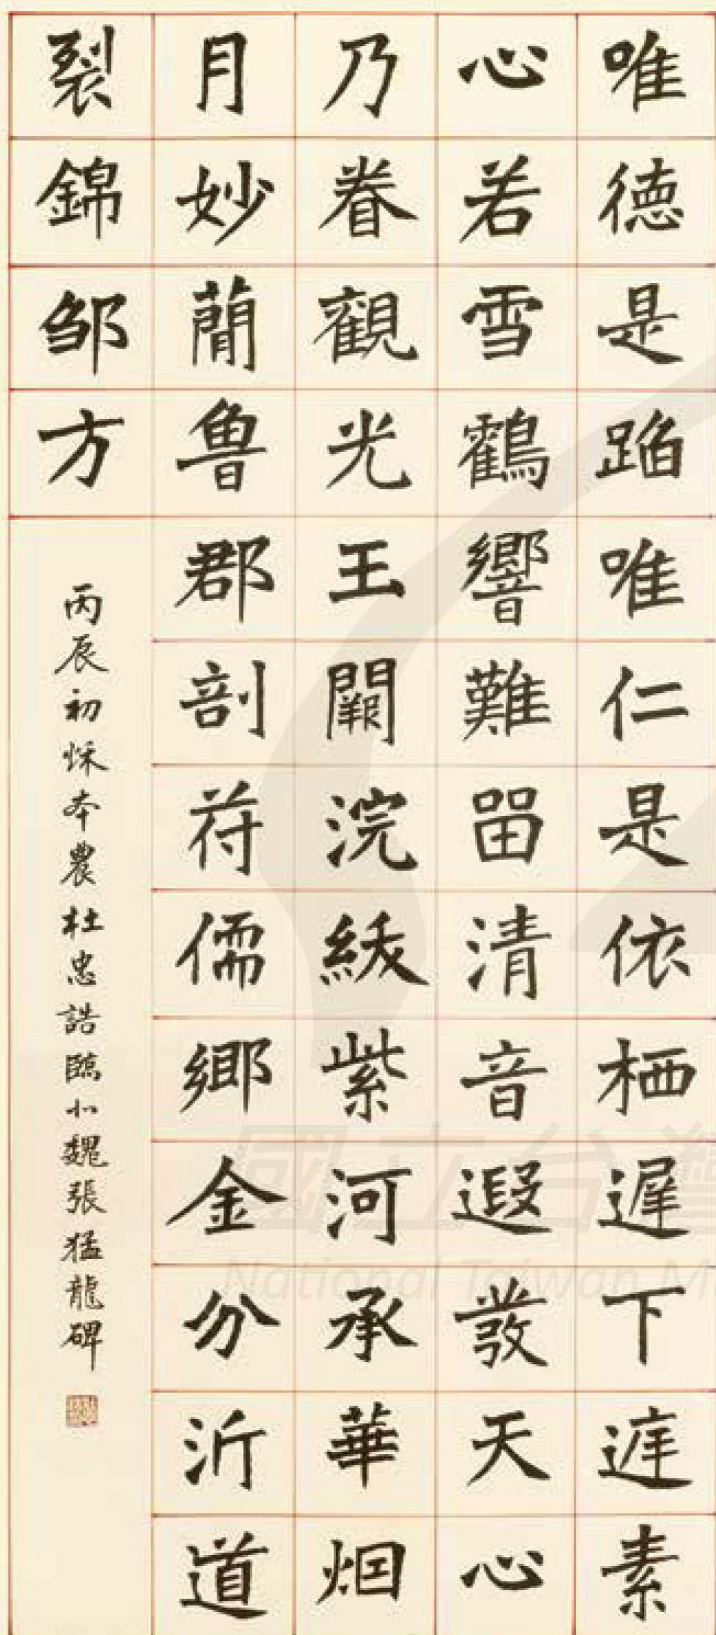 唯德是蹈唯仁是依栖遲下莛素
心若雪鶴響難留清音遐發天心
乃眷觀光王闕浣紱紫河承華烟
月妙簡魯郡剖苻儒鄉金分沂道
裂錦邹方
丙辰初秌本農杜忠誥臨北魏張猛龍碑
國立台灣
National Taiwan M